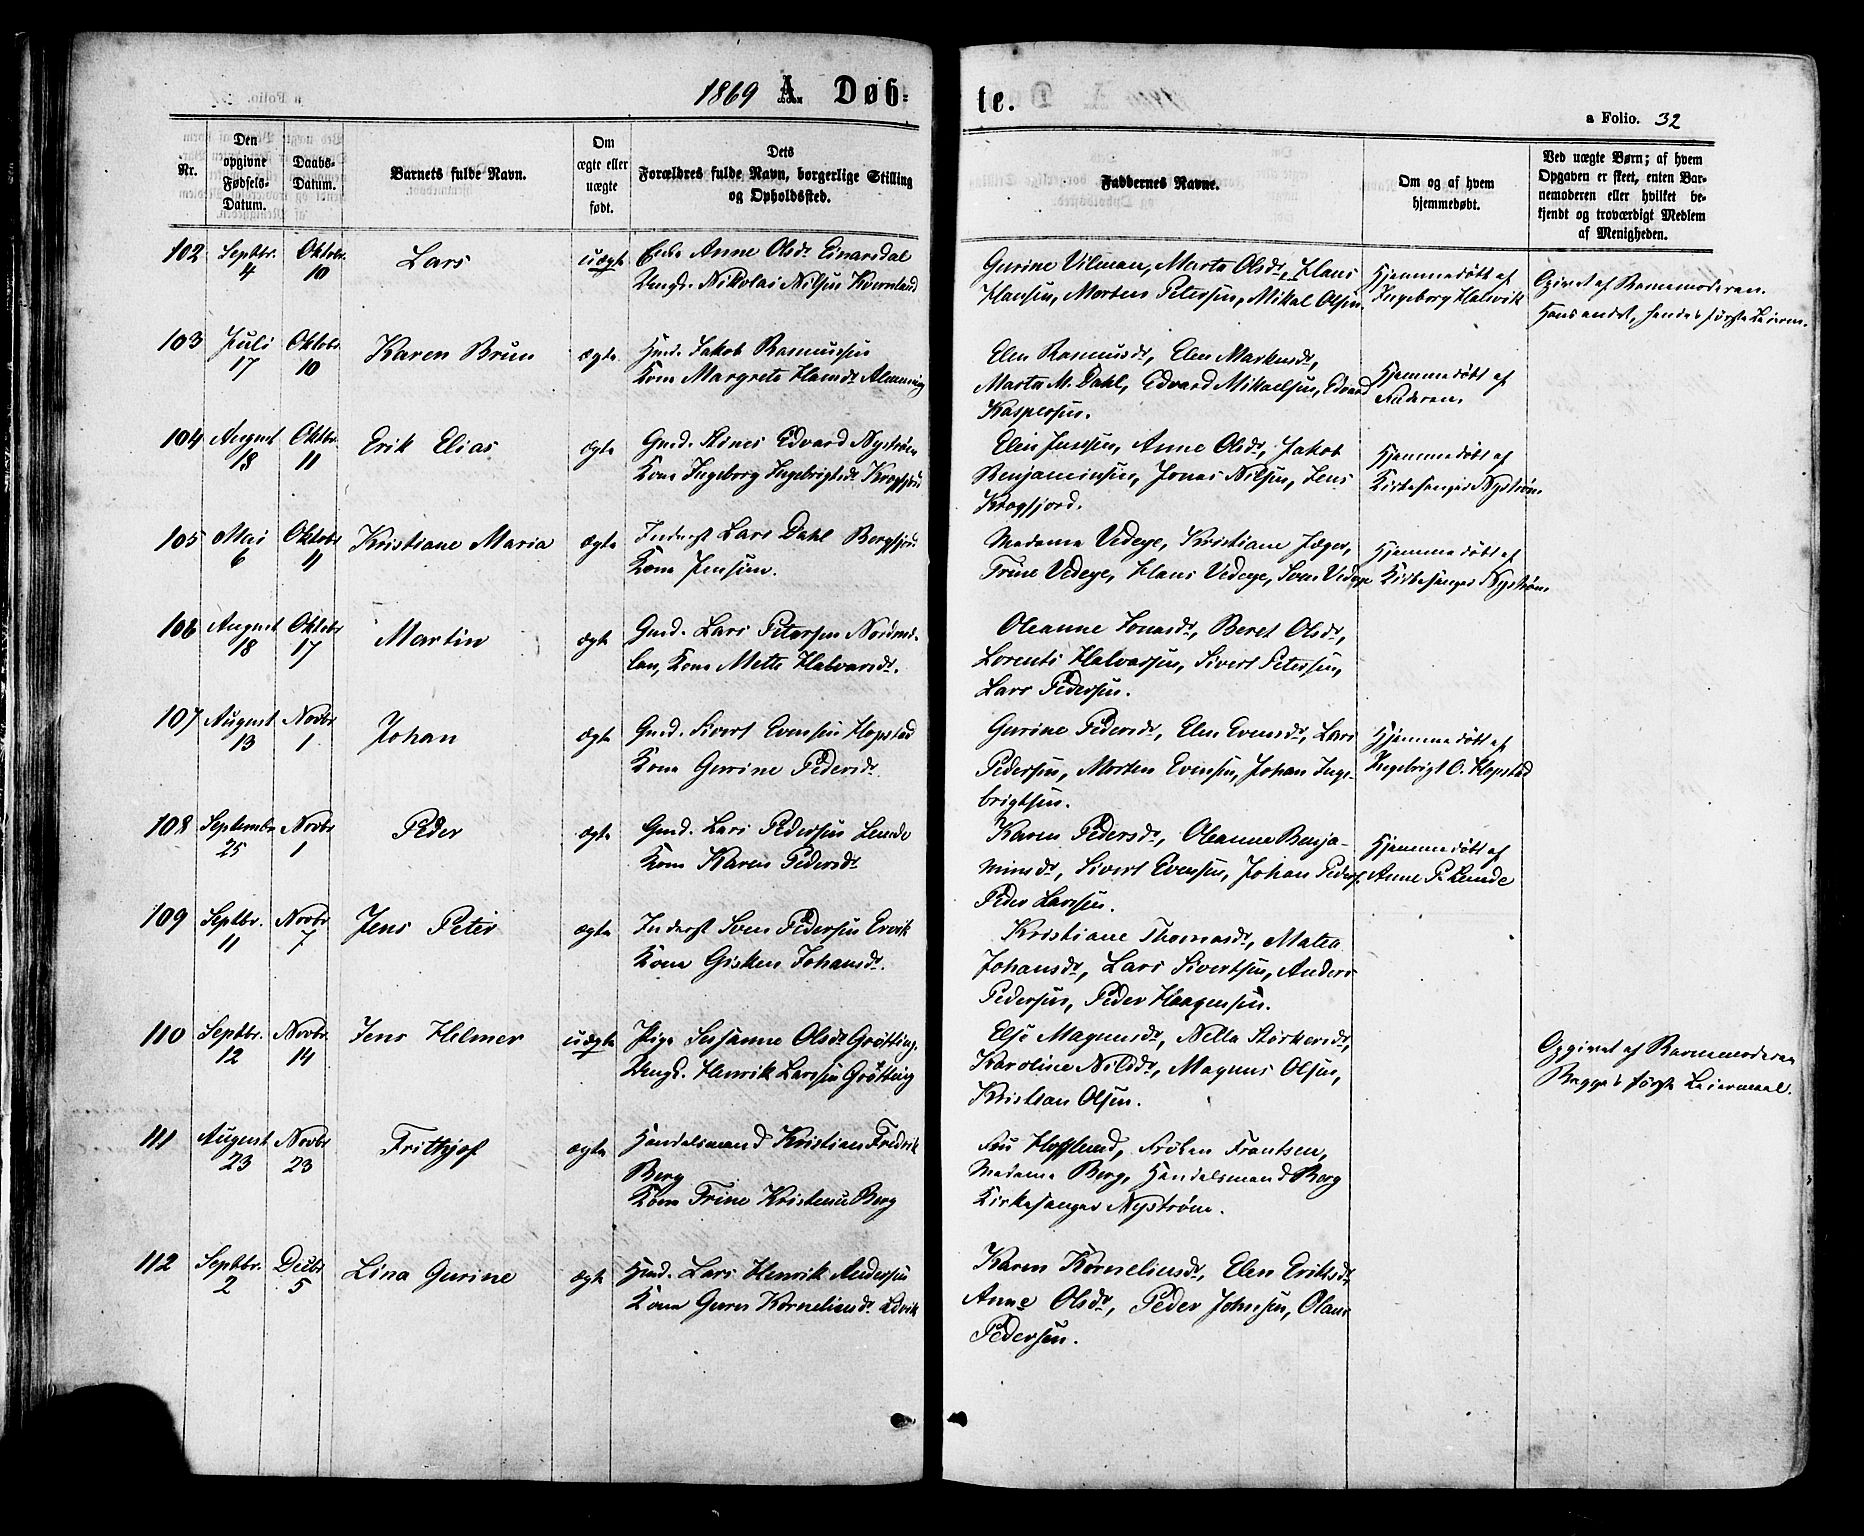 1869 A. Døb-
te.
a Folio. 32
Nr.
Den opgivne Fødsels-Datum.
Daabs-Datum.
Barnets fulde Navn.
Om ægte eller uægte født.
Dets Forældres fulde Navn, borgerlige Stilling og Opholdssted.
Faddernes Navne.
Om og af hvem hjemmedøbt.
Ved uægte Børn; af hvem Opgaven er skeet, enten Bar-nemoderen eller hvilket be-kjendt og troværdigt Medlem af Menigheden.
102 Septbr. 4 Oktobr. 10 Lars uægte
Anne Olsdr. Einarsdal
Ungk. Nikolai Nilsen Kvernland
Gurine Vilman, Marta Olsdr, Hans
Hansen, Morten Petersen, Mikal Olsen.
Hjemmedøbt af
Ingeborg Halsvik
Opgivet af Barnemoderen.
Hans andet, hendes første Leierm.
103 Juli 17 Oktobr 10 Karen Brun ægte
Gmd. Jakob Rasmussen
Kone Margrete Hansdr.
Elen Rasmusdr, Elen Markusdr,
Marta M. Dahl, Edvard Mikaelsen, Edvard
Kaspersen.
Hjemmedøbt af
Faderen.
104 August 18 Oktbr. 11 Erik Elias ægte
Gmd. Edvard Nystrøm
Kone Ingeborg Ingebrigtsdr Krogfjord
Elen Jensen, Anne Olsdr, Jakob
Benjaminsen, Jonas Nilsen, Jens
Krogfjord.
Hjemmedøbt af
Kirkesanger Nystrøm
105 Mai 6 Oktobr 11 Kristiane Maria ægte
Inderst Lars Dahl
Kone Jensine.
Madame Vedege, Kristiane Jæger,
Trine Vedege, Hans Vedege, Sven Vedege
Hjemmedøbt af
Kirkesanger Nystrøm
106 August 18 Oktobr 17 Martin ægte
Gmd. Lars Petersen Nordmel-
lan, Kone Mette Halvarsdr.
Oleanne Jonasdr, Beret Olsdr,
Lorents Halvarsen, Sivert Petersen,
Lars Pedersen.
107 August 13 Novbr 1 Johan ægte
Gmd. Sivert Evensen Hopstad
Kone Gurine Pedersdr.
Gurine Pedersdr, Elen Evensdr, Lars
Pedersen, Morten Evensen, Johan Inge-
brigtsen.
Hjemmedøbt af
Ingebrigt O. Hopstad
108 Septembr 25 Novbr 1 Peder ægte
Gmd. Lars Pedersen Lunde
Kone Karen Pedersdr.
Karen Pedersdr, Oleanne Benja-
minsdr, Sivert Evensen, Johan Peders.
Peder Larssen.
Hjemmedøbt af
Anne P. Lunde
109 Septbr. 11 Novbr 7 Jens Peter ægte
Inderst Sven Pedersen Ervik
Kone Gisken Johansdr.
Kristiane Thomasdr, Matea
Johansdr, Lars Sivertsen, Anders
Pedersen, Peder Haagensen.
110 Septbr. 12 Novbr. 14 Jens Hilmer uægte
Pige Susanne Olsdr Grøtting.
Ungk. Henrik Larssen Grøtting
Else Magnusdr, Nella Størkersdr,
Karoline Nilsdr, Magnus Olsen,
Kristian Olsen.
Opgivet af Barnemoderen
Begges første Leiermaal.
111 August 23 Novbr 23 Frithjof ægte
Handelsmand Kristian Fredrik
Berg
Kone Trine Kristense Berg
Fru Hofflund, Frøken Frantsen,
Madame Berg, Handelsmand Berg
Kirkesanger Nystrøm.
112 Septbr. 2 Decbr 5 Lina Gurine ægte
Gmd. Lars Henrik Andersen
Kone Guren Korneliusdr. Ervik
Karen Korneliusdr, Elen Eriksdr
Anne Olsdr, Peder Johnsen, Olaus
Pedersen.